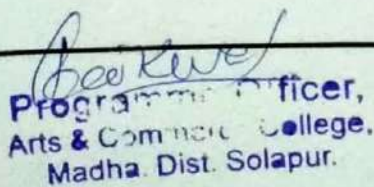 Programme Officer,
Arts & Commerce College,
Madha. Dist. Solapur.